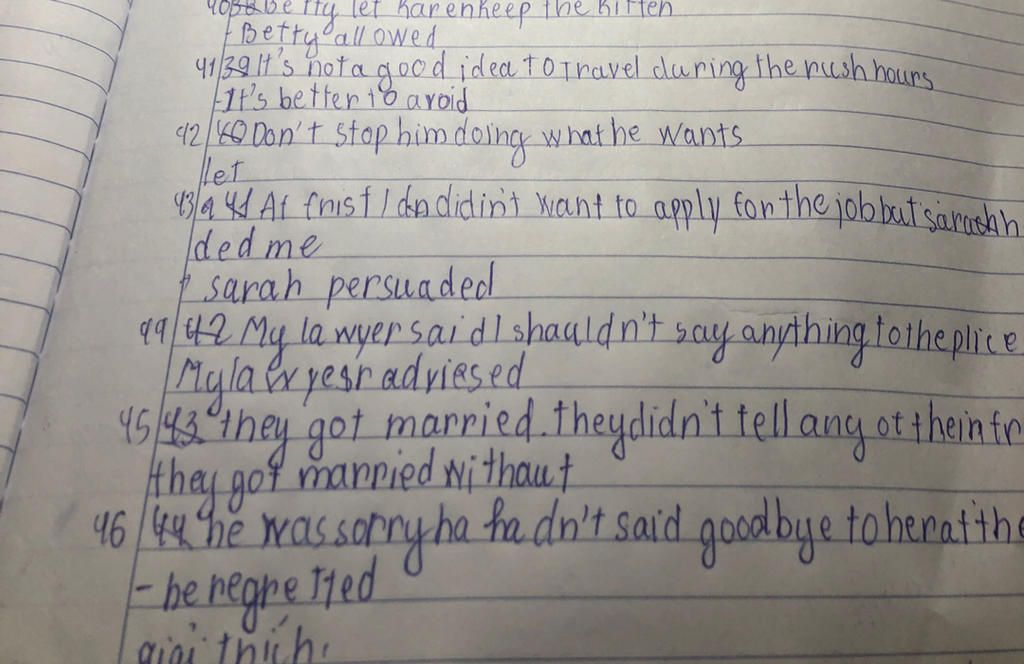 Betty let Karen keep the kitten
- Betty allowed
41 39 It's not a good idea to travel during the rush hours
- It's better to avoid
42 40 Don't stop him doing what he wants
let
43 41 At first I didin't want to apply for the job but sarach
ded me
sarah persuaded
44 42 My lawyer said I shauldn't say anything to the plice
My adviesed
45 43 they got married. they didn't tell any of their fr
they got married withaut
46 44 he was sorry ha hadn't said goodbye to her at the
- he regretted
giải thích: